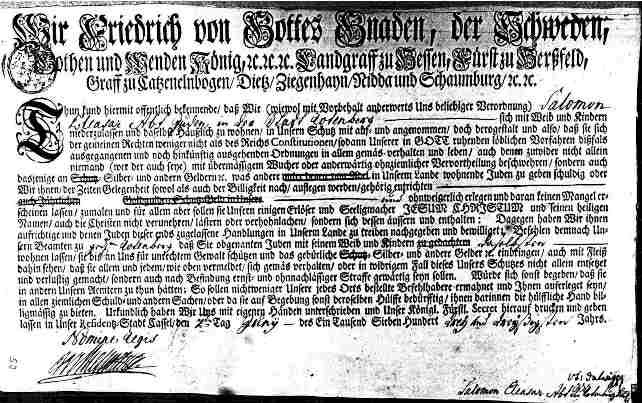 Wir Friedrich von Gottes Gnaden, der Schweden,
Gothen und Wenden König, ꝛc. ꝛc. ꝛc. Landgraff zu Hessen, Fürst zu Herßfeld,
Graff zu Catzenelnbogen / Dietz / Ziegenhayn / Nidda und Schaumburg / ꝛc. ꝛc.
Thun kund hiermit offentlich bekennende / daß Wir (wiewol mit Vorbehalt anderwerts Uns beliebiger Verordnung) Salomon
Juden in der Stadt Rotenberg sich mit Weib und Kindern
niederzulassen und daselbst Häußlich zu wohnen / in Unsern Schutz auf- und angenommen / doch dergestalt und also / daß sie sich
der gemeinen Rechten weniger nicht als des Reichs Constitutionen / sodann Unserer in GOTT ruhenden löblichen Vorfahren dißfals
ausgegangenen und noch hinkünftig ausgehenden Ordnungen in allem gemäs verhalten und leben / auch denen zuwider nicht allein
niemand (wer der auch sey) mit übermässigem Wucher oder anderwärtig ohnziemlicher Vervortheilung beschwehren / sondern auch
dasjenige an Schutz- Silber- und andern Geldern / ꝛc. was andere in Unserm Lande wohnende Juden zu geben schuldig oder
Wir ihnen der Zeiten Gelegenheit sowol als auch der Billigkeit nach / auflegen werden / gehörig entrichten
auch Jährlichen und ohnweigerlich erlegen und daran keinen Mangel er-
scheinen lassen / zumalen und für allem aber sollen sie Unsern einigen Erlöser und Seeligmacher JESUM CHRISTUM und seinen heiligen
Namen / auch die Christen nicht verunehren / lästern oder verhohnehen / sondern sich dessen äussern und enthalten; Dagegen haben Wir ihnen
aufrichtige und denen Juden dieser Orts zugelassene Handlungen in Unserm Lande zu treiben nachgegeben und bewilliget; Befehlen demnach Un-
sern Beamten zu Rotenberg daß Sie obgenanten Juden mit seinem Weib und Kindern zu gedachten
wohnen lassen / sie bis an Uns für unrechten Gewalt schützen und das gebürliche Schutz- Silber- und andere Gelder ꝛc. einfordern / auch mit Fleiß
dahin sehen / daß sie allem und jedem / wie oben vermeldet / sich gemäs verhalten / oder in widrigem Fall dieses Unsers Schutzes nicht allein entsetzt
und verlustig gemacht / sondern auch nach Befindung ernst- und ohnnachlässiger Straffe gewärtig seyn sollen. Würde sich sonst begeben / daß sie
in andern Unsern Aemtern zu thun hätten; So sollen nichtweniger Unsere jedes Orts bestellte Befehlhabere ermahnet und Ihnen auferleget seyn /
in allen ziemlichen Schuld- und andern Sachen / oder da sie auf Begebung sonst deroselben Hülffe bedürfftig / ihnen darinnen die hülffliche Hand bil-
ligmäßig zu bieten. Urkundlich haben Wir Uns mit eigenen Händen unterschrieben und Unser Königl. Fürstl. Secret hierauf drucken und geben
lassen in Unser Residentz-Stadt Cassel / den Tag des Ein Tausend Sieben Hundert Jahrs.
Nomine Regis
Salomon Eleasar